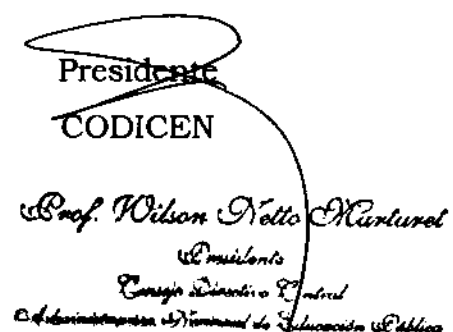 Presidente
CODICEN
Prof. Wilson Netto Marturet
Presidente
Consejo Directivo Central
Administración Nacional de Educación Pública